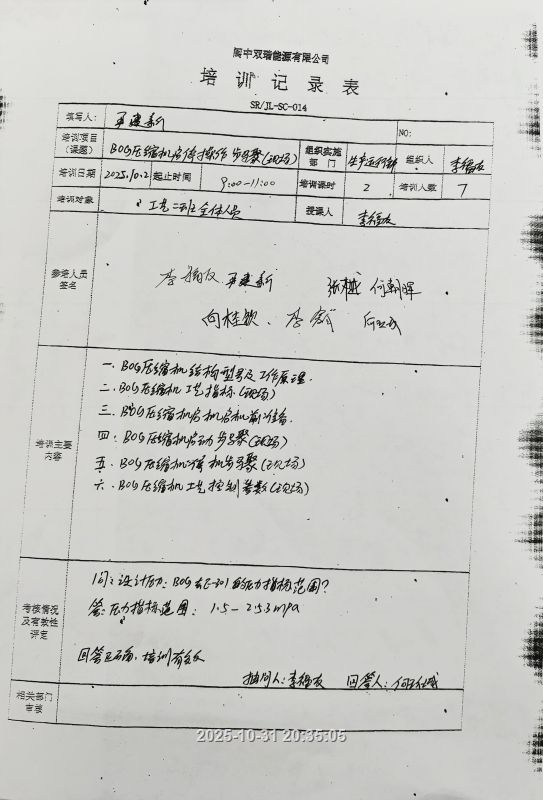 阆中双瑞能源有限公司
培训记录表
SR/JL-SC-014
填写人： 建新 NO:
培训项目（课题） BOG压缩机启停操作步骤(现场) 组织实施部门 生产运行部 组织人 李福友
培训日期 2025.10.2 起止时间 9:00-11:00 培训课时 2 培训人数 7
培训对象 工艺二班全体人员 授课人 李福友
参培人员签名 李福友 建新 何朝晖
向桂钦 李
培训主要内容
一、BOG压缩机结构型号及工作原理.
二、BOG压缩机工艺指标(现场)
三、BOG压缩机启机启机前准备.
四、BOG压缩机启动步骤(现场)
五、BOG压缩机停机步骤(现场)
六、BOG压缩机工艺控制参数(现场)
考核情况及有效性评定
问：设计压力：BOG E-301的压力指标范围？
答：压力指标范围：1.5-2.53mpa
回答正确，培训有效
抽问人：李福友 回答人：何
相关部门审核
2025-10-31 20:35:05